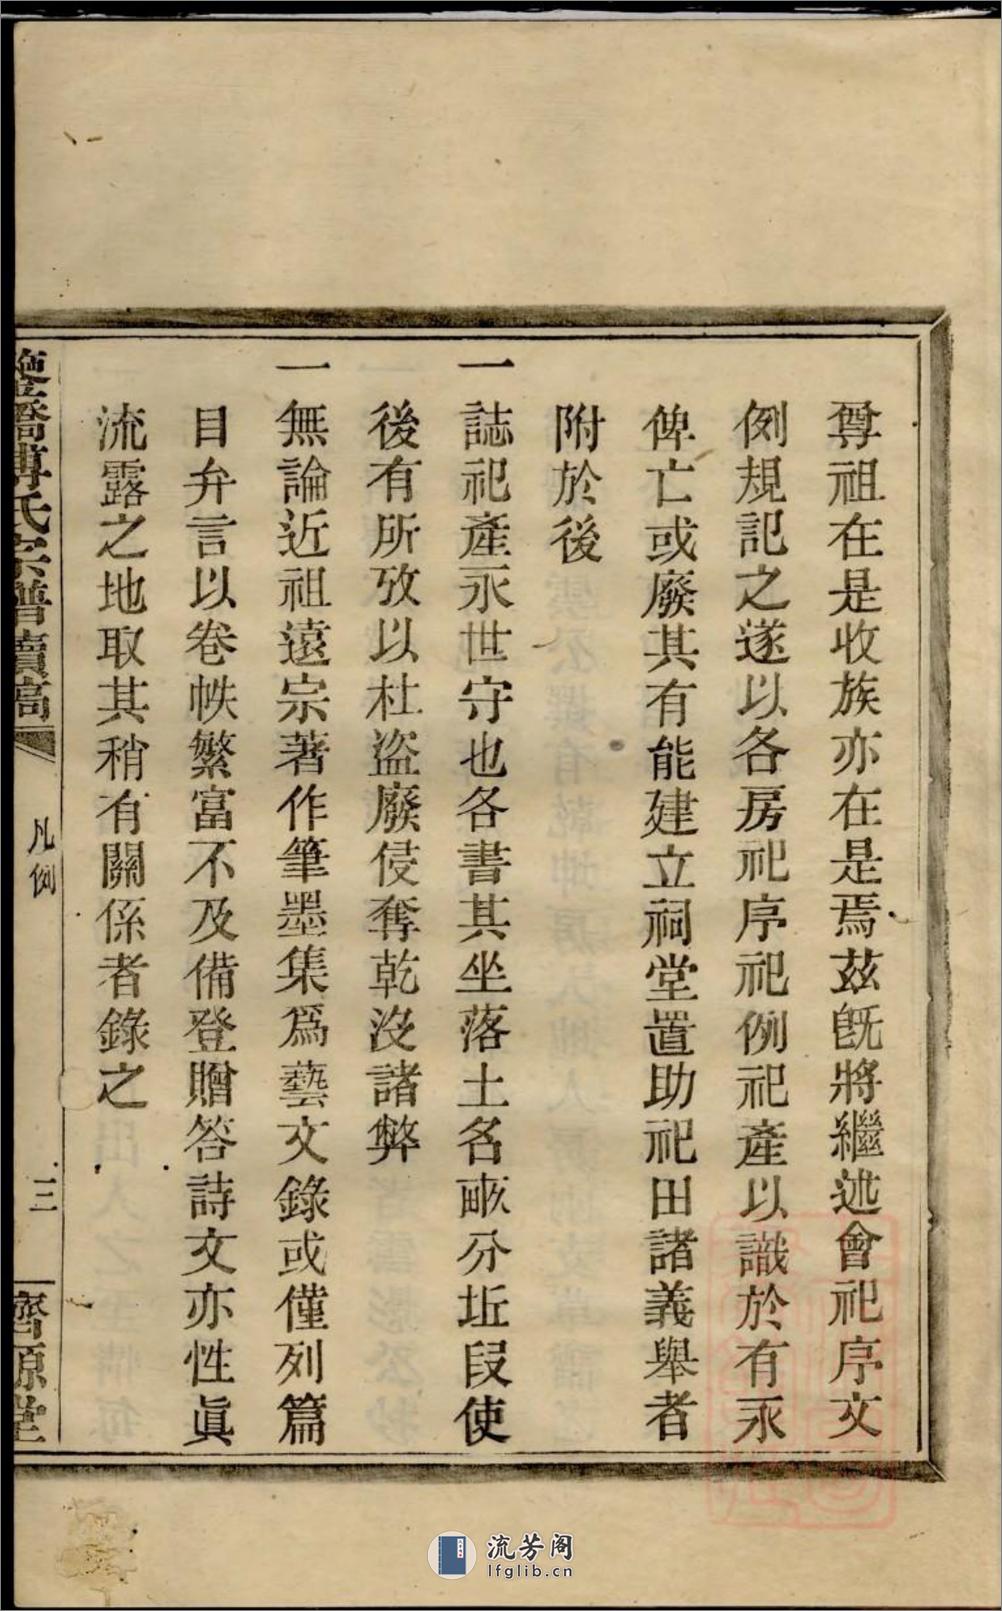 尊祖在是收族亦在是焉茲旣將繼述會祀序文
例規記之遂以各房祀序祀例祀產以識於有永
俾亡或廢其有能建立祠堂置助祀田諸義舉者
附於後
一誌祀產永世守也各書其坐落土名畝分坵段使
後有所攷以杜盜廢侵奪乾沒諸弊
一無論近祖遠宗著作筆墨集爲藝文錄或僅列篇
目弁言以卷帙繁富不及備登贈答詩文亦性眞
流露之地取其稍有關係者錄之
雙橋傅氏宗譜續稿
凡例
三
齊原堂
流芳阁
lfglib.cn